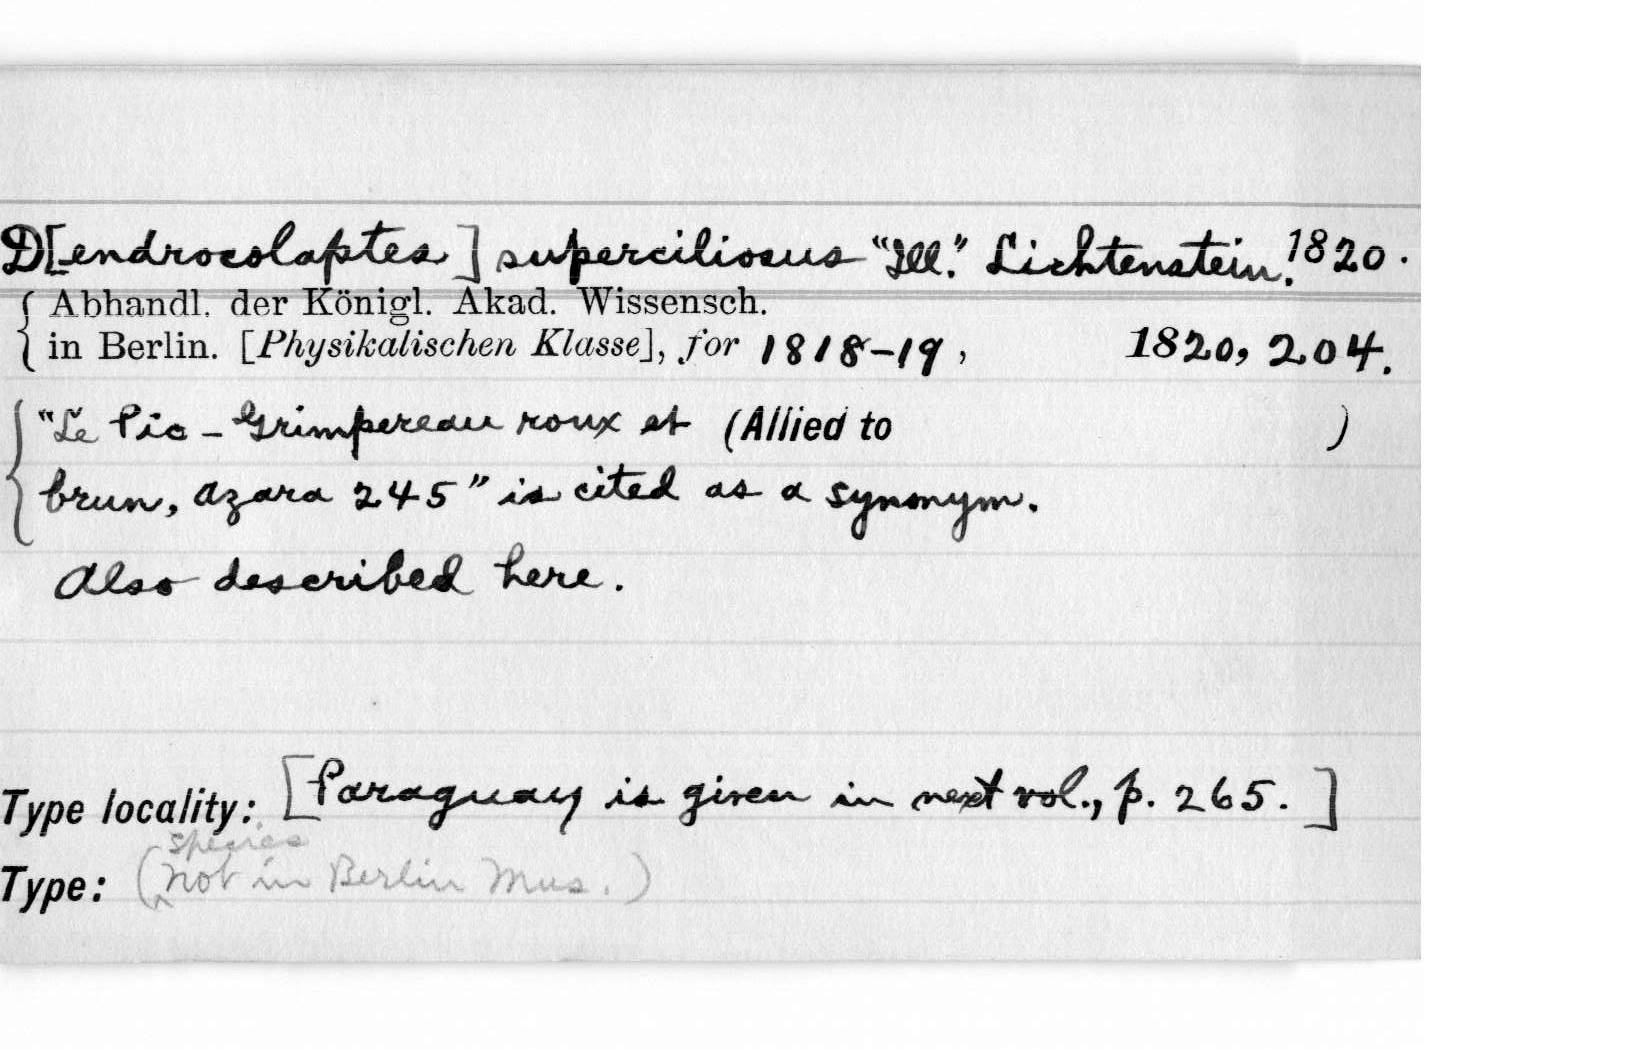 D[endrocolaptes] superciliosus "Ill." Lichtenstein. 1820.
Abhandl. der Königl. Akad. Wissensch.
in Berlin. [Physikalischen Klasse], for 1818-19, 1820, 204.
"Le Pic-Grimpereau roux et (Allied to )
brun, Azara 245" is cited as a synonym.
Also described here.
Type locality: [Paraguay is given in next vol., p. 265.]
species
Type: (^not in Berlin Mus.)